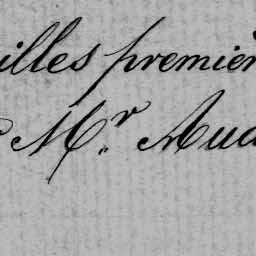 illes premièr
Mr. Aud